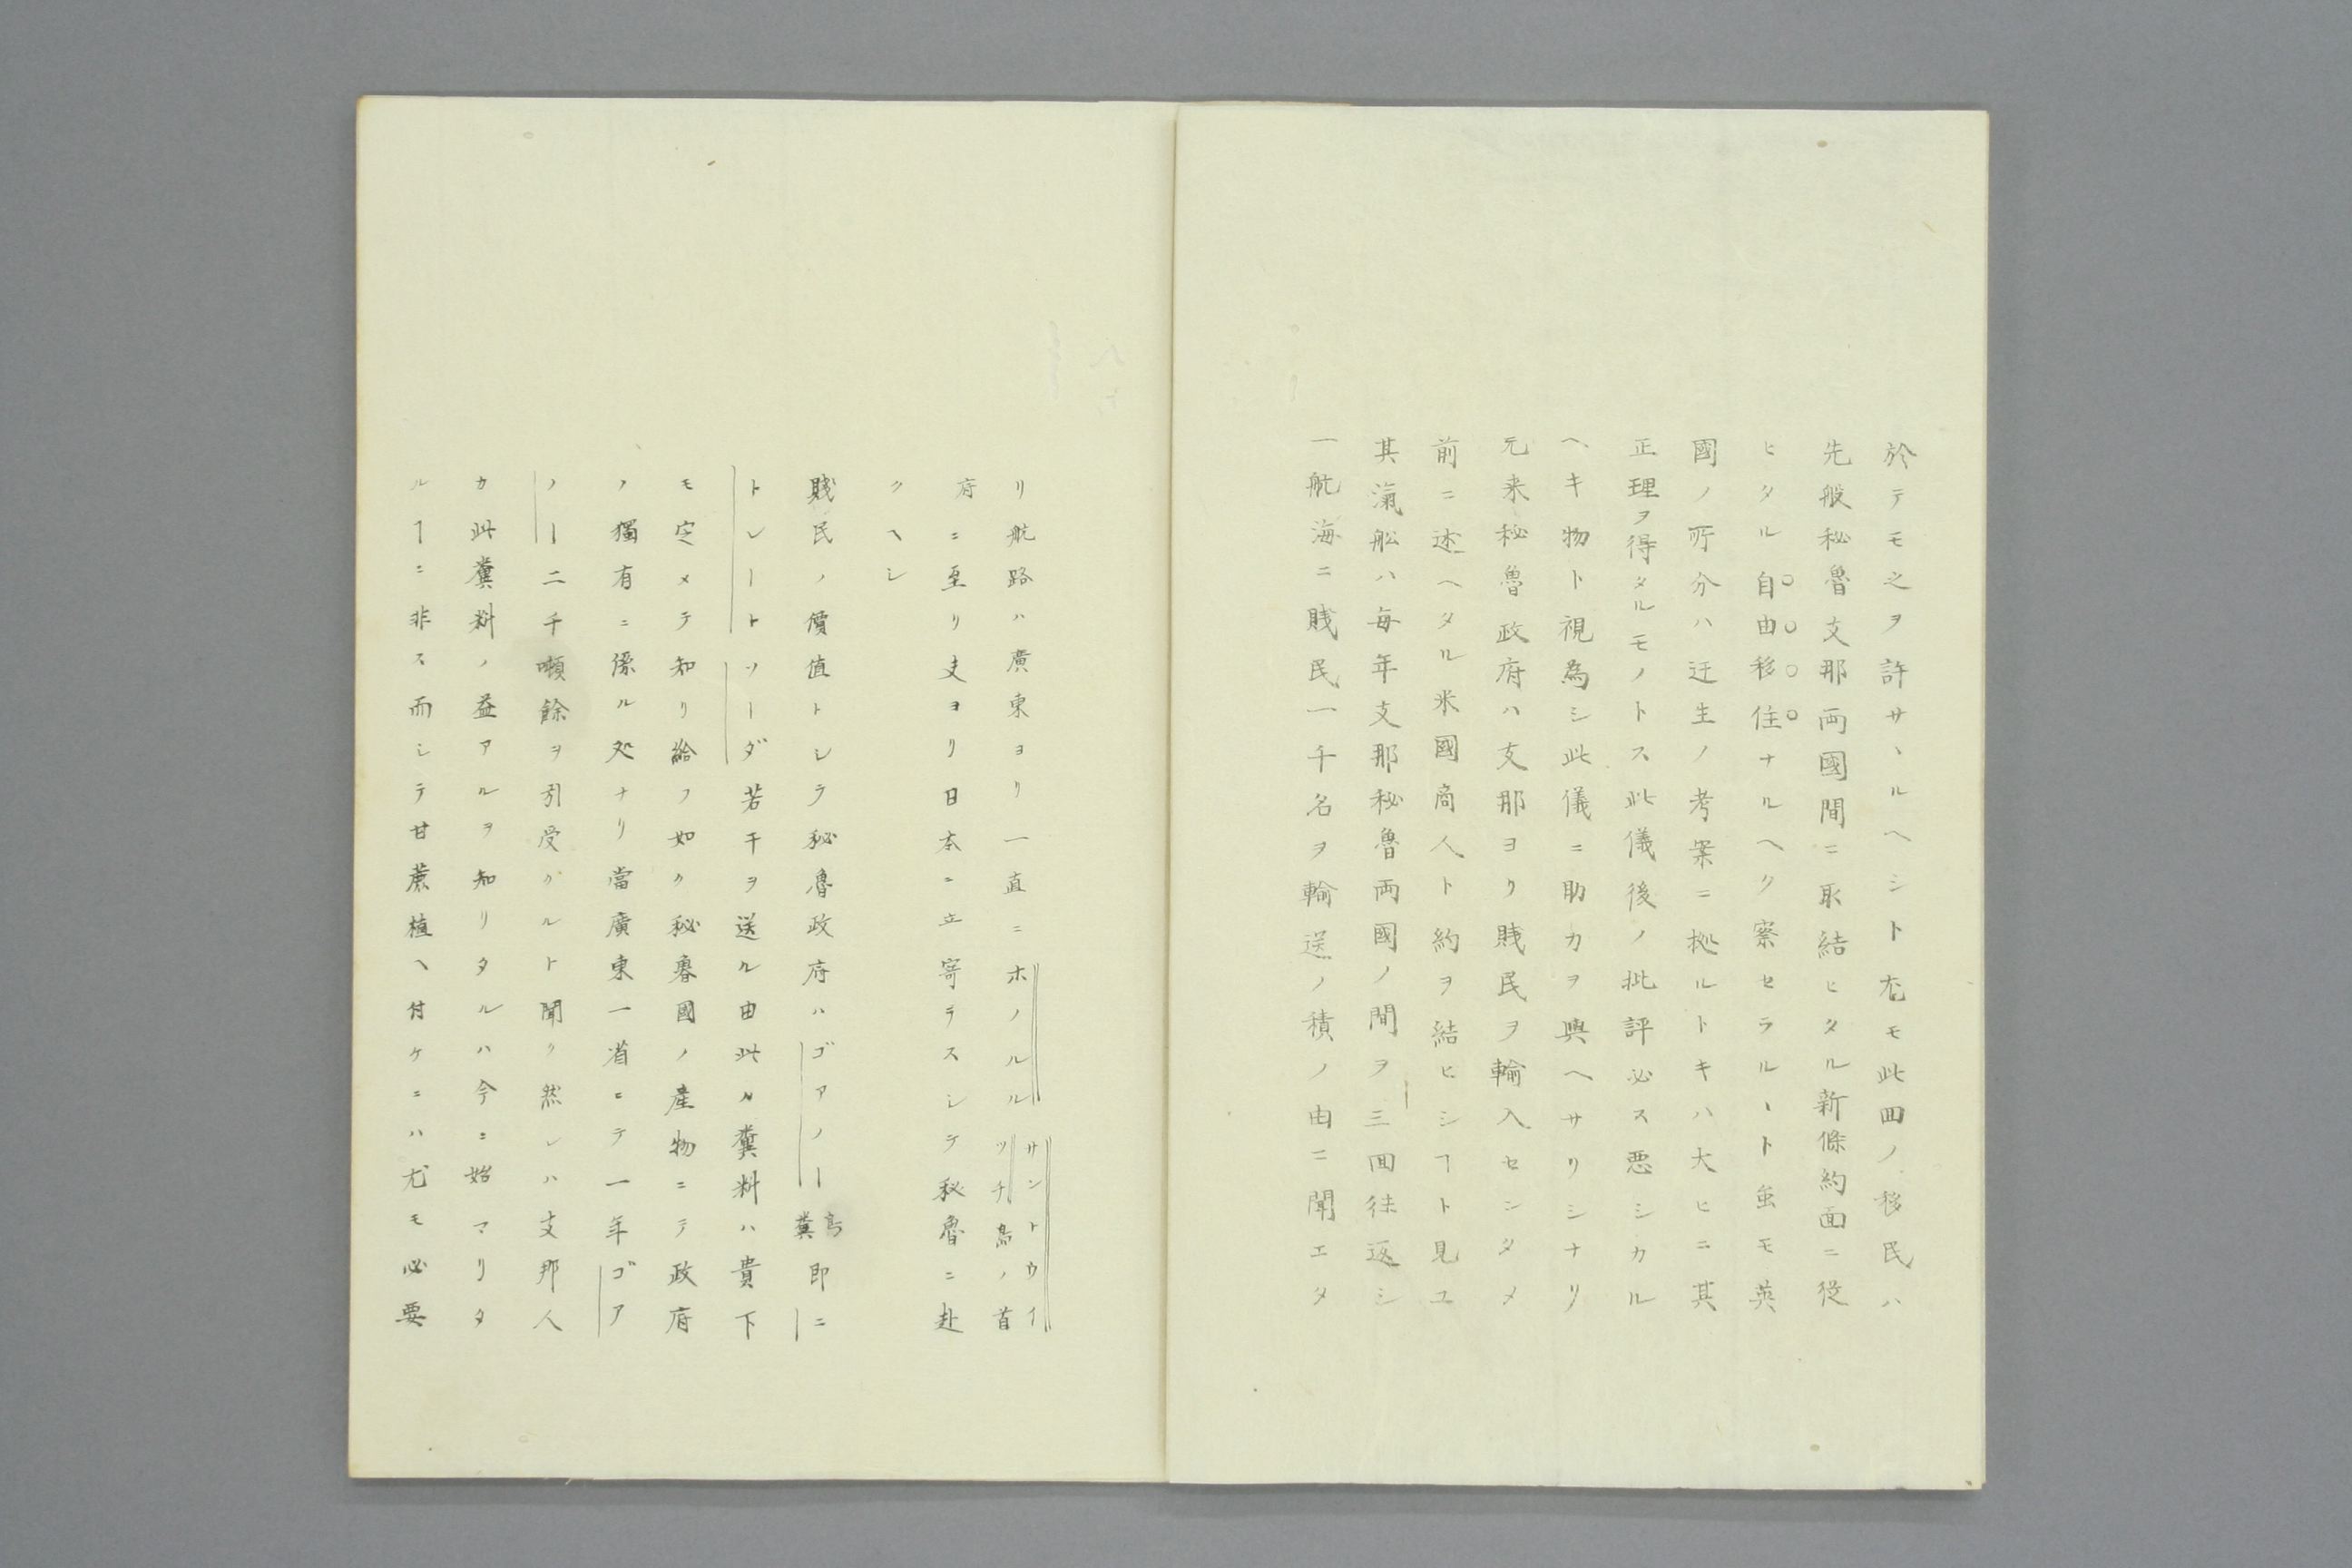 於テモ之ヲ許サヽルヘシト尤モ此回ノ移民ハ
先般秘魯支那両國間ニ取結ヒタル新條約面ニ従
ヒタル自由移住ナルヘク察セラルヽト虽モ英
國ノ所分ハ迂生ノ考案ニ拠ルトキハ大ヒニ其
正理ヲ得タルモノトス此儀後ノ批評必ス悪シカル
ヘキ物ト視為シ此儀ニ助カヲ與ヘサリシナリ
元来秘魯政府ハ支那ヨリ賎民ヲ輸入センタメ
前ニ述ヘタル米國商人ト約ヲ結ヒシヿト見ユ
其滊舩ハ毎年支那秘魯両國ノ間ヲ三回往返シ
一航海ニ賎民一千名ヲ輸送ノ積ノ由ニ聞エタ
リ航路ハ廣東ヨリ一直ニホノルルサントウイツチ島ノ首
府ニ至リ支ヨリ日本ニ立寄ラスシテ秘魯ニ赴
クヘシ
賎民ノ價值トシテ秘魯政府ハゴアノー鳥糞即ニ
トレートソーダ若干ヲ送ル由此ノ糞料ハ貴下
モ定メテ知リ給フ如ク秘魯國ノ産物ニテ政府
ノ獨有ニ係ル処ナリ當廣東一省ニテ一年ゴア
ノー二千噸餘ヲ引受クルト聞ク然レハ支那人
カ此糞料ノ益アルヲ知リタルハ今ニ始マリタ
ルヿニ非ス而シテ甘蔗植ヘ付ケニハ尤モ必要